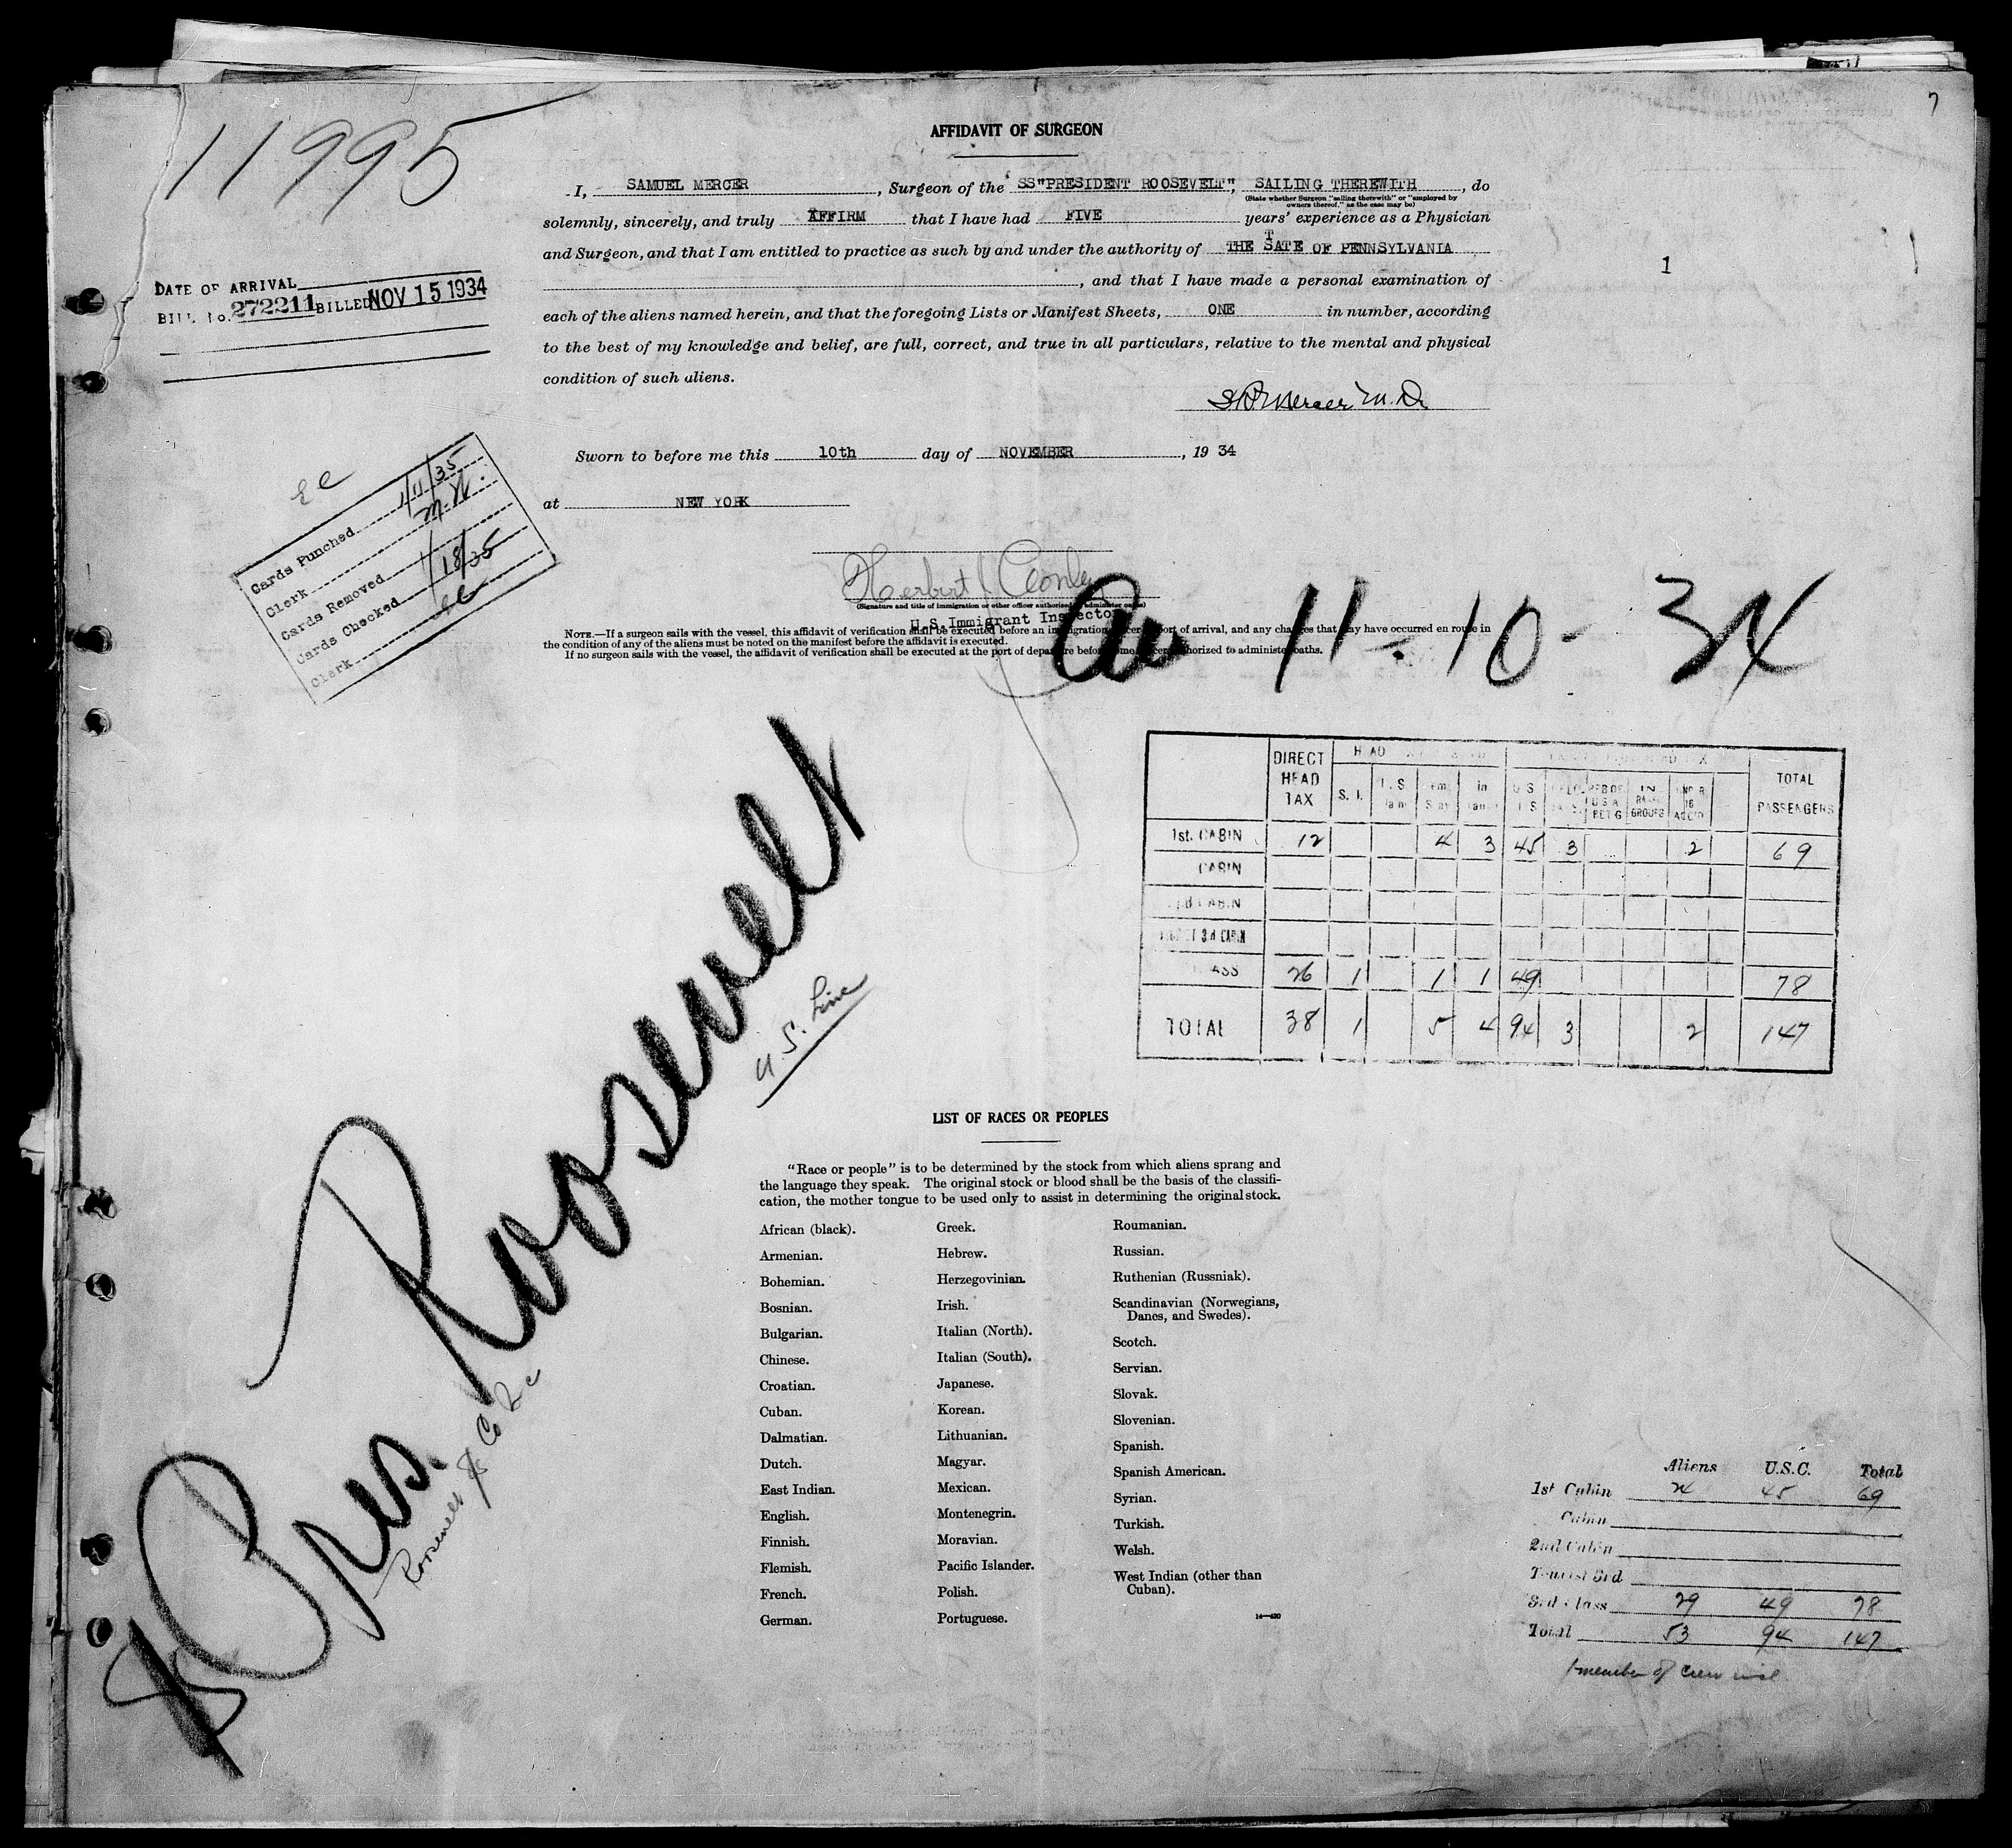 7
11995
AFFIDAVIT OF SURGEON
I, SAMUEL MERCER, Surgeon of the SS"PRESIDENT ROOSEVELT", SAILING THEREWITH, do
(State whether Surgeon "sailing therewith" or "employed by
owners thereof," as the case may be)
solemnly, sincerely, and truly AFFIRM that I have had FIVE years' experience as a Physician
and Surgeon, and that I am entitled to practice as such by and under the authority of THE SATE OF PENNSYLVANIA
T
1
, and that I have made a personal examination of
each of the aliens named herein, and that the foregoing Lists or Manifest Sheets, ONE in number, according
to the best of my knowledge and belief, are full, correct, and true in all particulars, relative to the mental and physical
condition of such aliens.
DATE OF ARRIVAL
BILL No. 272211 BILLED NOV 15 1934
Mercer M.D.
Sworn to before me this 10th day of NOVEMBER, 19 34
at NEW YORK
Cards Punched 1/11/35
Clerk M.W.
Cards Removed
Cards Checked 1/18/35
Clerk
Herbert
(Signature and title of immigration or other officer authorized to administer oaths)
U.S. Immigrant Inspector
NOTE.—If a surgeon sails with the vessel, this affidavit of verification shall be executed before an immigration officer port of arrival, and any changes that may have occurred en route in
the condition of any of the aliens must be noted on the manifest before the affidavit is executed.
If no surgeon sails with the vessel, the affidavit of verification shall be executed at the port of departure before some officer authorized to administer oaths.
11-10-34
DIRECT HEAD TAX S. I. TOTAL PASSENGERS
1st. CABIN 12 4 3 45 3 2 69
CABIN
CABIN
3d CABIN
26 1 1 1 49 78
TOTAL 38 1 5 4 94 3 2 147
SS Pres. Roosevelt
U.S. Line
LIST OF RACES OR PEOPLES
"Race or people" is to be determined by the stock from which aliens sprang and
the language they speak. The original stock or blood shall be the basis of the classifi-
cation, the mother tongue to be used only to assist in determining the original stock.
African (black).
Armenian.
Bohemian.
Bosnian.
Bulgarian.
Chinese.
Croatian.
Cuban.
Dalmatian.
Dutch.
East Indian.
English.
Finnish.
Flemish.
French.
German.
Greek.
Hebrew.
Herzegovinian.
Irish.
Italian (North).
Italian (South).
Japanese.
Korean.
Lithuanian.
Magyar.
Mexican.
Montenegrin.
Moravian.
Pacific Islander.
Polish.
Portuguese.
Roumanian.
Russian.
Ruthenian (Russniak).
Scandinavian (Norwegians,
Danes, and Swedes).
Scotch.
Servian.
Slovak.
Slovenian.
Spanish.
Spanish American.
Syrian.
Turkish.
Welsh.
West Indian (other than
Cuban).
Aliens U.S.C. Total
1st Cabin 24 45 69
Cabin
2nd Cabin
Tourist 3rd
3rd Class 29 49 78
Total 53 94 147
1 member of crew